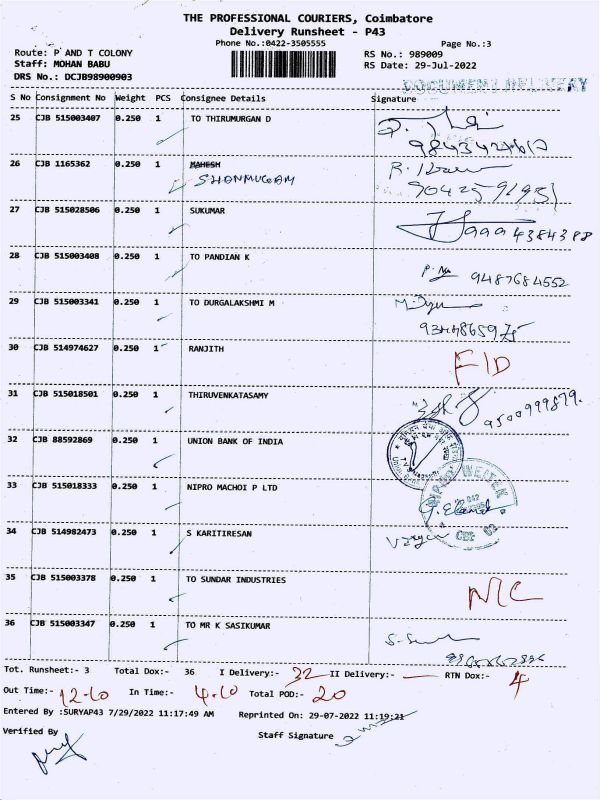 THE PROFESSIONAL COURIERS, Coimbatore
Delivery Runsheet - P43
Phone No.:0422-3505555
Page No.:3
Route: P AND T COLONY
RS No.: 989009
Staff: MOHAN BABU
RS Date: 29-Jul-2022
DRS No.: DCJB98900903
DOCUMENT DELIVERY
S No Consignment No Weight PCS Consignee Details Signature
25 CJB 515003407 0.250 1 TO THIRUMURGAN D
26 CJB 1165362 0.250 1 MAHESH
SHANMUGAM
27 CJB 515028506 0.250 1 SUKUMAR
28 CJB 515003408 0.250 1 TO PANDIAN K
9487684552
29 CJB 515003341 0.250 1 TO DURGALAKSHMI M
30 CJB 514974627 0.250 1 RANJITH
31 CJB 515018501 0.250 1 THIRUVENKATASAMY
9500999879.
32 CJB 88592869 0.250 1 UNION BANK OF INDIA
33 CJB 515018333 0.250 1 NIPRO MACHOI P LTD
34 CJB 514982473 0.250 1 S KARITIRESAN
35 CJB 515003378 0.250 1 TO SUNDAR INDUSTRIES
36 CJB 515003347 0.250 1 TO MR K SASIKUMAR
Tot. Runsheet:- 3 Total Dox:- 36 I Delivery:- 32 II Delivery:- — RTN Dox:- 4
Out Time:- 12.10 In Time:- 4.10 Total POD:- 20
Entered By :SURYAP43 7/29/2022 11:17:49 AM Reprinted On: 29-07-2022 11:19:21
Verified By
Staff Signature